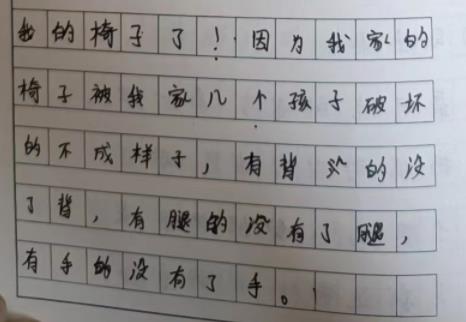 我的椅子了！因为我家的
椅子被我家几个孩子破坏
的不成样子，有背的没
了背，有腿的没有了腿，
有手的没有了手。